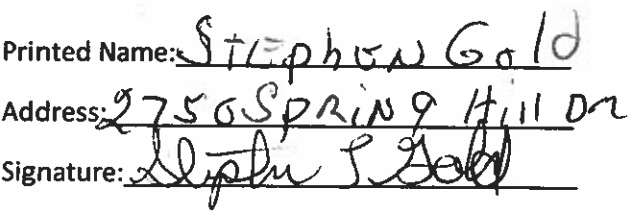 Printed Name: Stephen Gold
Address: 2750 Spring Hill Dr
Signature: Stephen J. Gold